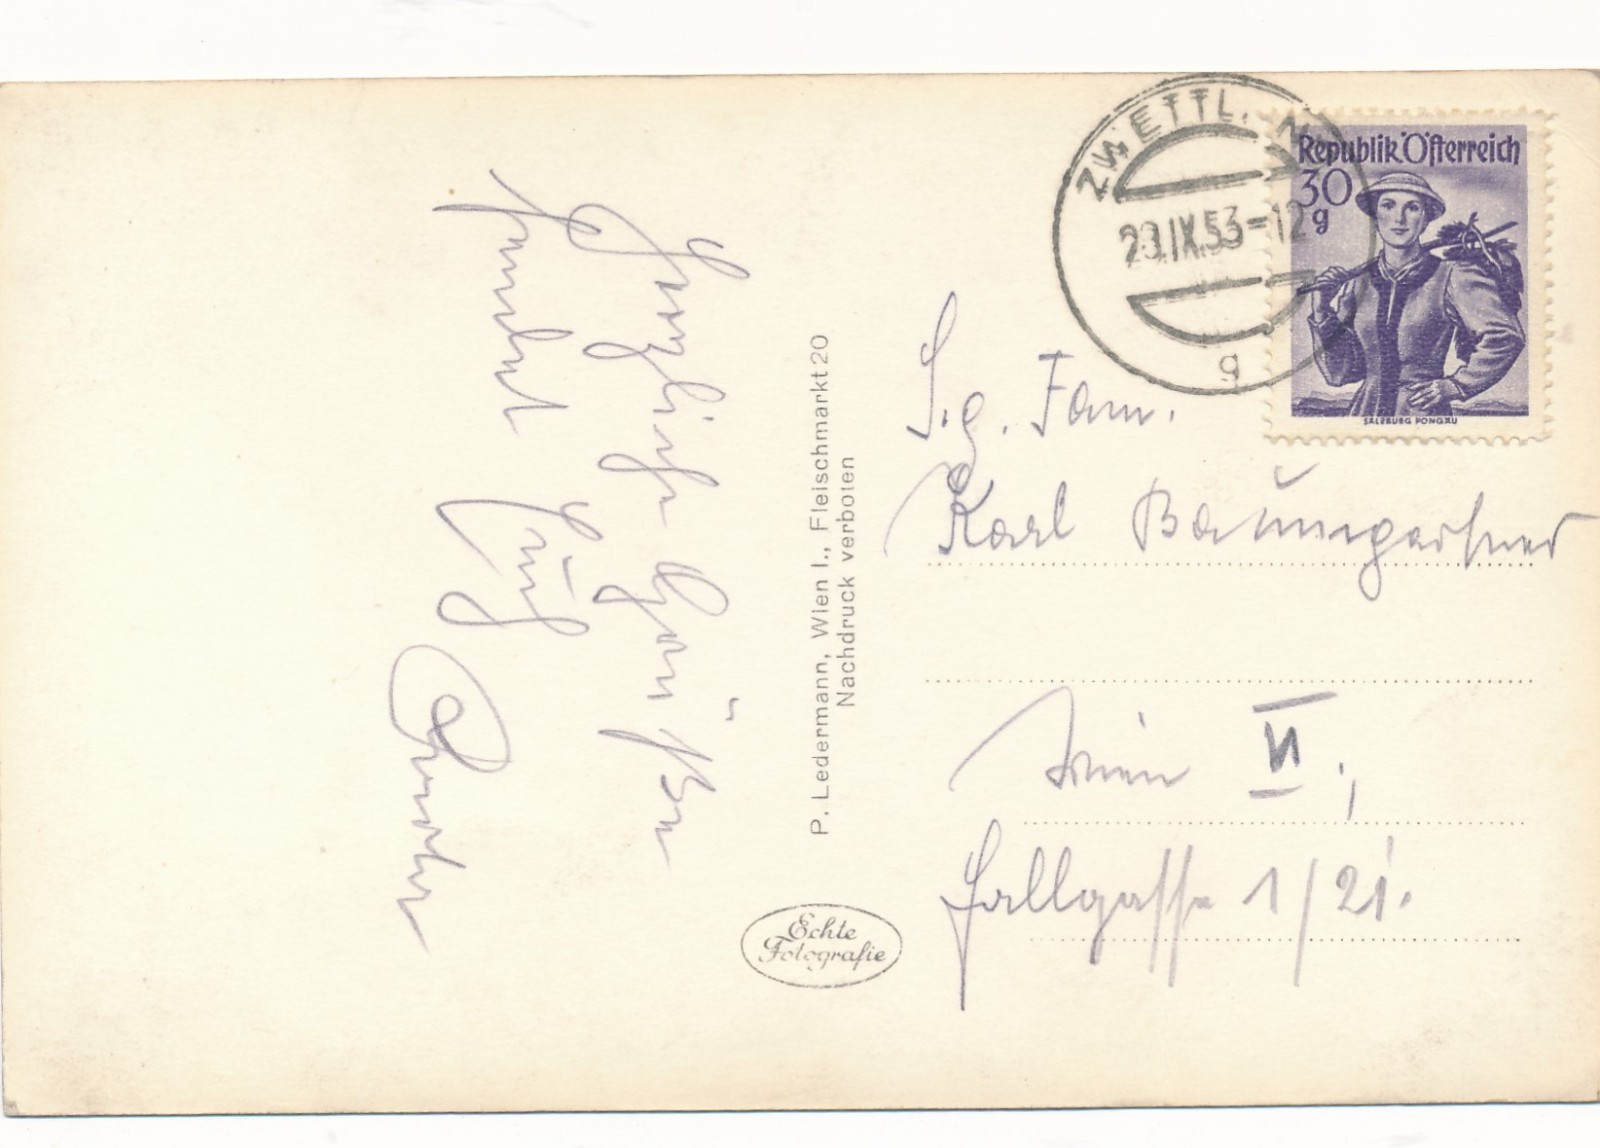 Herzliche Grüße
sendet
P. Ledermann, Wien I., Fleischmarkt 20
Nachdruck verboten
Echte
Fotografie
ZWETTL, N
29.IX.53-12
g
Republik Österreich
30
g
SALZBURG PONGAU
S.g. Fam.
Karl Baumgartner
Wien VI,
gasse 1/21.